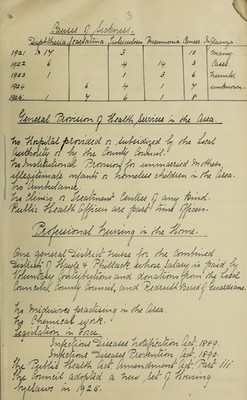 3
Causes of Sickness.
Diphtheria Scarlatina Tuberculosis Pneumonia Cancer Influenza
1921 14 3 10 many
1922 6 4 14 3 cases
1923 1 1 3 6 number
1924 6 4 1 7 unknown
1925 1 4 6 1 8
General Provision of Health Services in the Area
No Hospital provided or subsidized by the Local
Authority or by the County Council.
No Institutional Provision for unmarried mothers,
illegitimate infants or homeless children in the area.
No Ambulance
No Clinics or Treatment Centres of any kind.
Public Health Officers are part time officers.
Professional Nursing in the Home.
One general District Nurse for the combined
District of Hayle & Phillack whose salary is paid by
Voluntary Contributions and donations from the Local
Council, County Council, and Redruth Board of Guardians.
No Midwives practising in the Area.
No Chemical work.
Legislation in Force.
Infectious Diseases Notification Act. 1889.
Infectious Diseases Prevention Act. 1890.
The Public Health Act Amendment Act. Part III
The Council adopted a new set of Housing
byelaws in 1925.